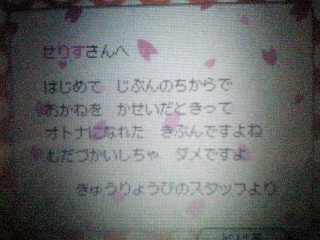 せりすさんへ
はじめて じぶんのちからで
おかねを かせいだときって
オトナになれた きぶんですよね
むだづかいしちゃ ダメですよ
きゅうりょうびのスタッフより